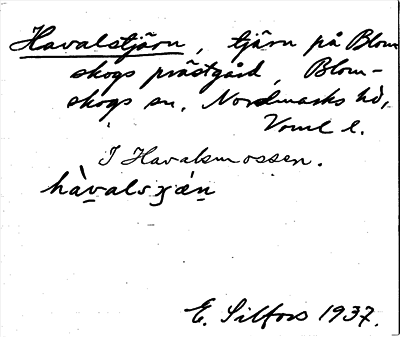 Havalstjärn, tjärn på Blom
skogs prästgård, Blom-
skogs sn. Nordmarks hd,
Vrml l.
I Havalsmossen.
hàvalsχæ̀n
E. Silfors 1937.